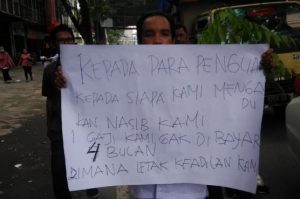 KEPADA PARA PENGUA
KEPADA SIAPA KAMI MENGA
DU
KAN NASIB KAMI
1 GAJI KAMI GAK DI BAYAR
4 BULAN
DIMANA LETAK KEADILAN KAMI